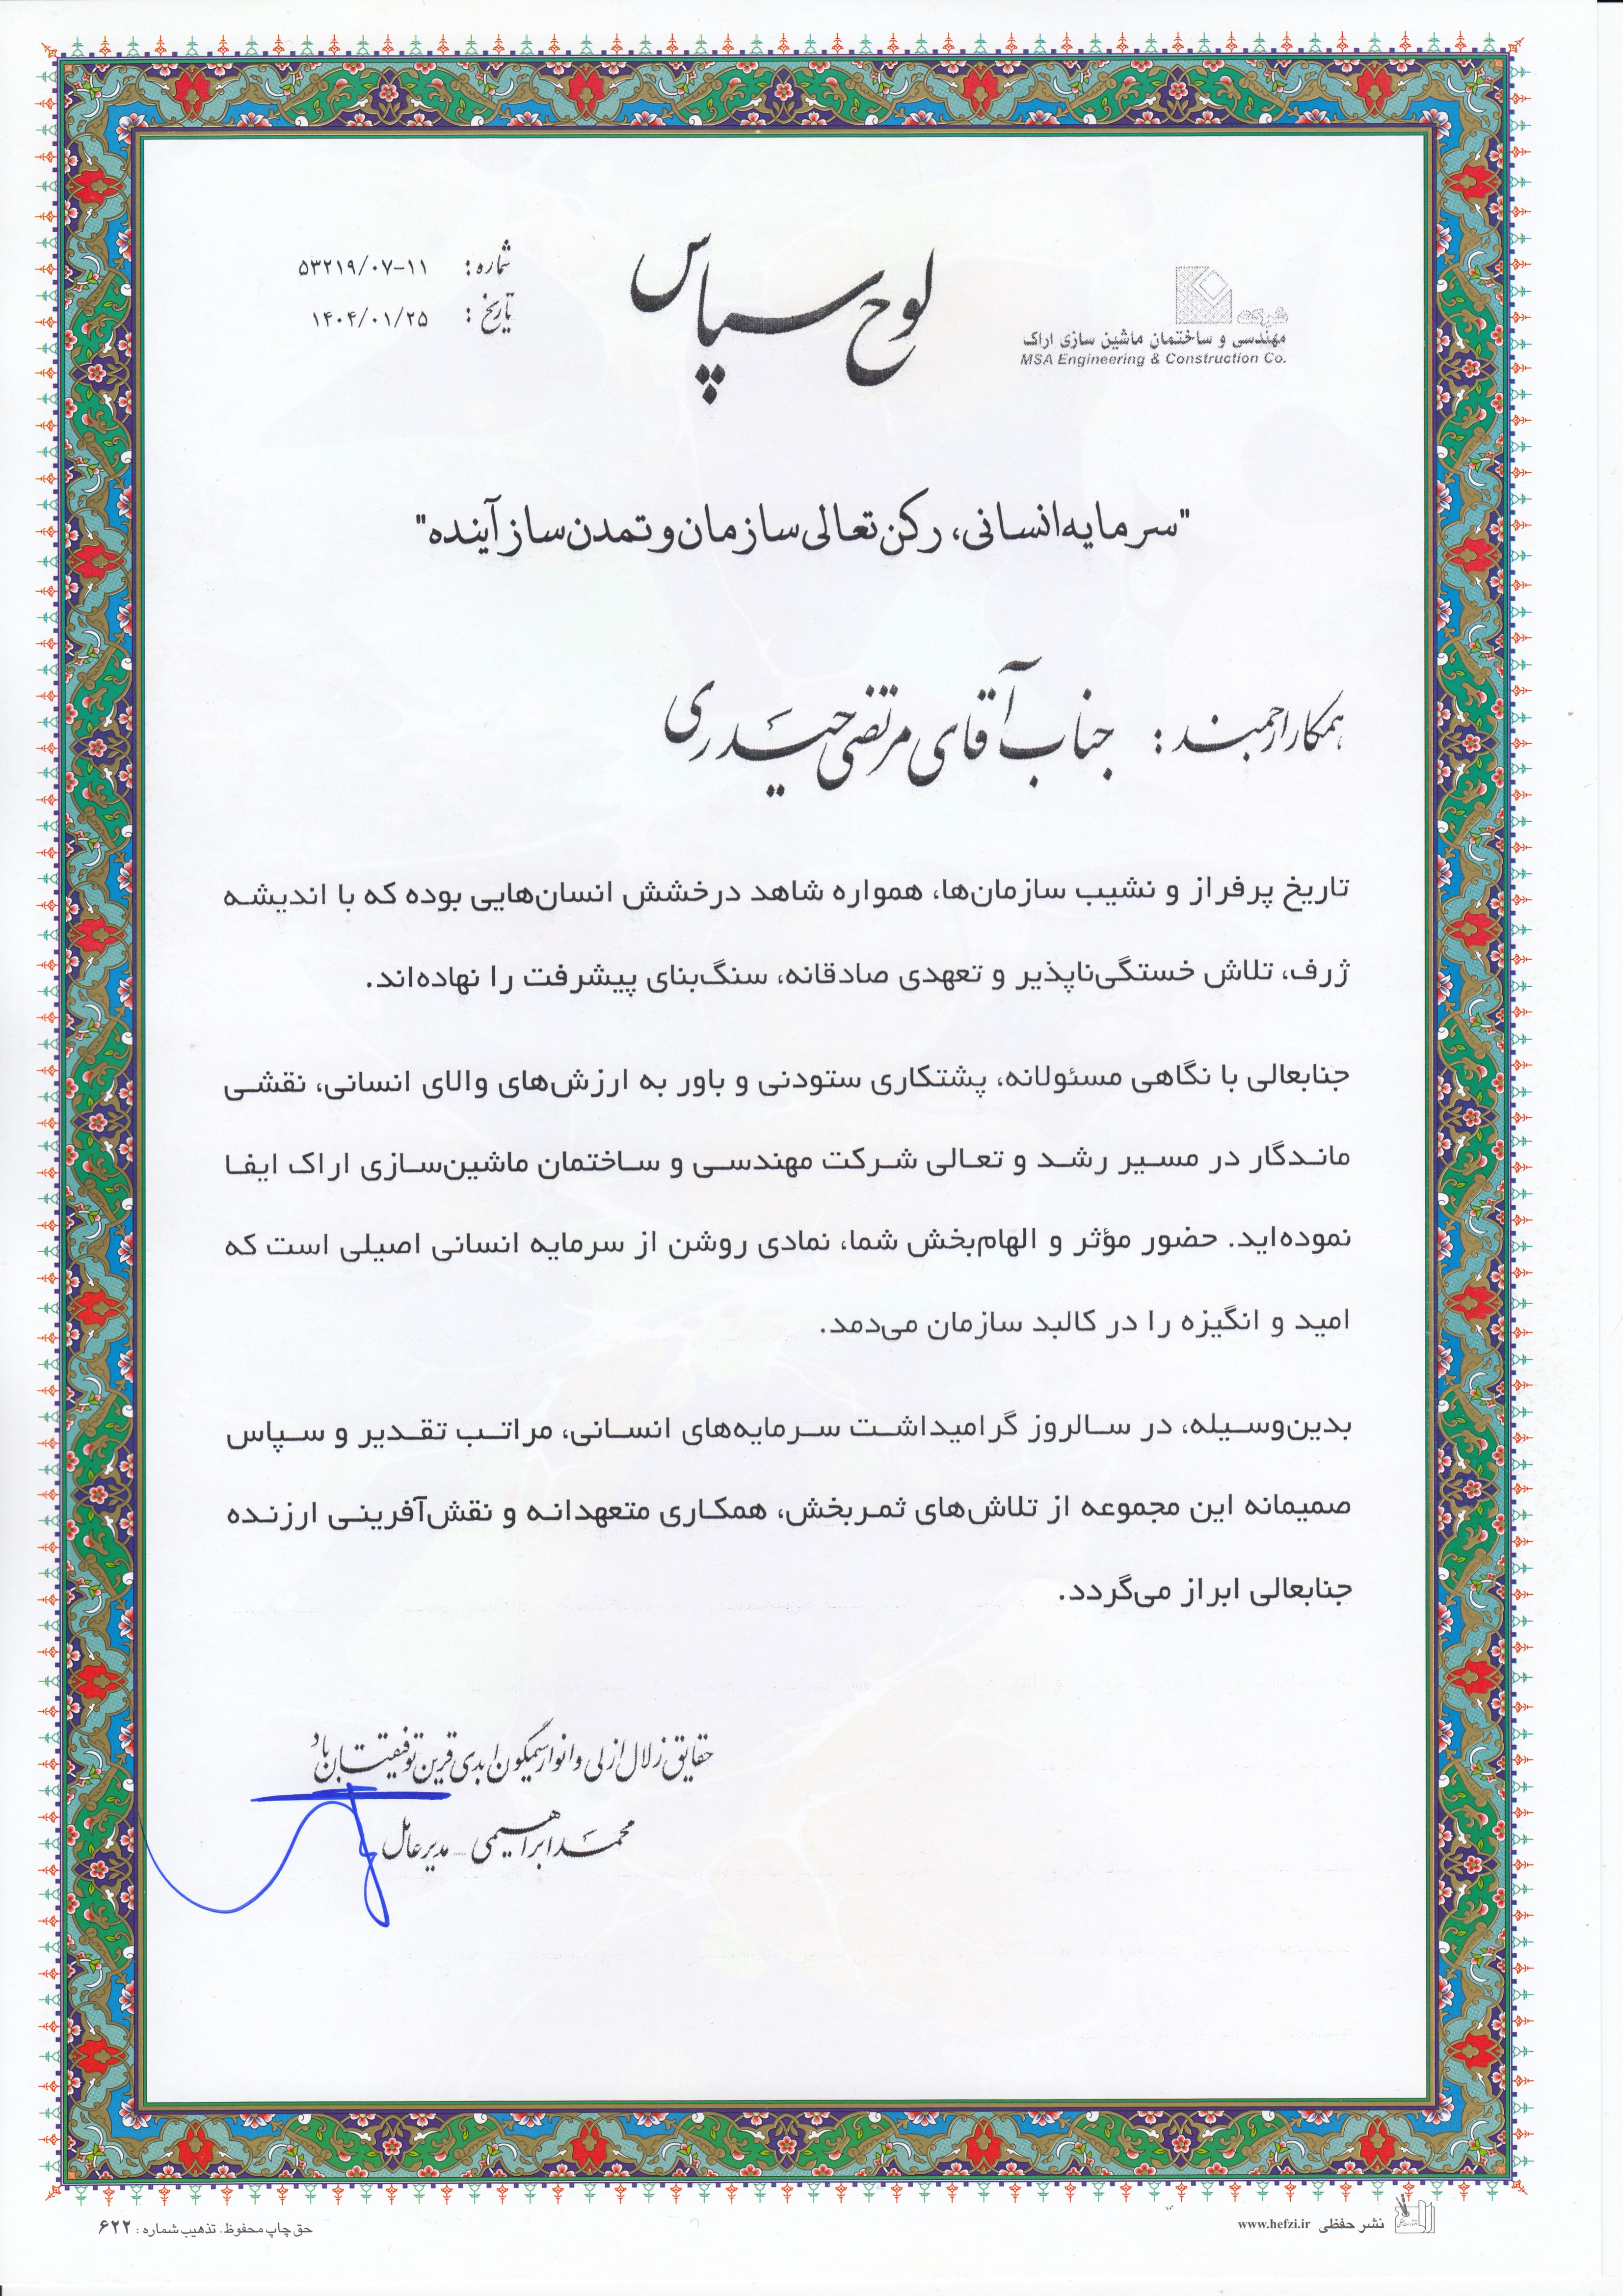 شرکت
مهندسی و ساختمان ماشین سازی اراک
MSA Engineering & Construction Co.
لوح سپاس
شماره: ۵۳۲۱۹/۰۷-۱۱
تاریخ: ۱۴۰۴/۰۱/۲۵
"سرمایه انسانی، رکن تعالی سازمان و تمدن ساز آینده"
همکار ارجمند: جناب آقای مرتضی حیدری
تاریخ پرفراز و نشیب سازمان‌ها، همواره شاهد درخشش انسان‌هایی بوده که با اندیشه
ژرف، تلاش خستگی‌ناپذیر و تعهدی صادقانه، سنگ‌بنای پیشرفت را نهاده‌اند.
جنابعالی با نگاهی مسئولانه، پشتکاری ستودنی و باور به ارزش‌های والای انسانی، نقشی
ماندگار در مسیر رشد و تعالی شرکت مهندسی و ساختمان ماشین‌سازی اراک ایفا
نموده‌اید. حضور مؤثر و الهام‌بخش شما، نمادی روشن از سرمایه انسانی اصیلی است که
امید و انگیزه را در کالبد سازمان می‌دمد.
بدین‌وسیله، در سالروز گرامیداشت سرمایه‌های انسانی، مراتب تقدیر و سپاس
صمیمانه این مجموعه از تلاش‌های ثمربخش، همکاری متعهدانه و نقش‌آفرینی ارزنده
جنابعالی ابراز می‌گردد.
حقایق زلال ازلی و انوار سیمگون ابدی قرین توفیقتان باد
محمد ابراهیمی - مدیرعامل
نشر حفظی www.hefzi.ir
حق چاپ محفوظ. تذهیب شماره: ۶۲۲